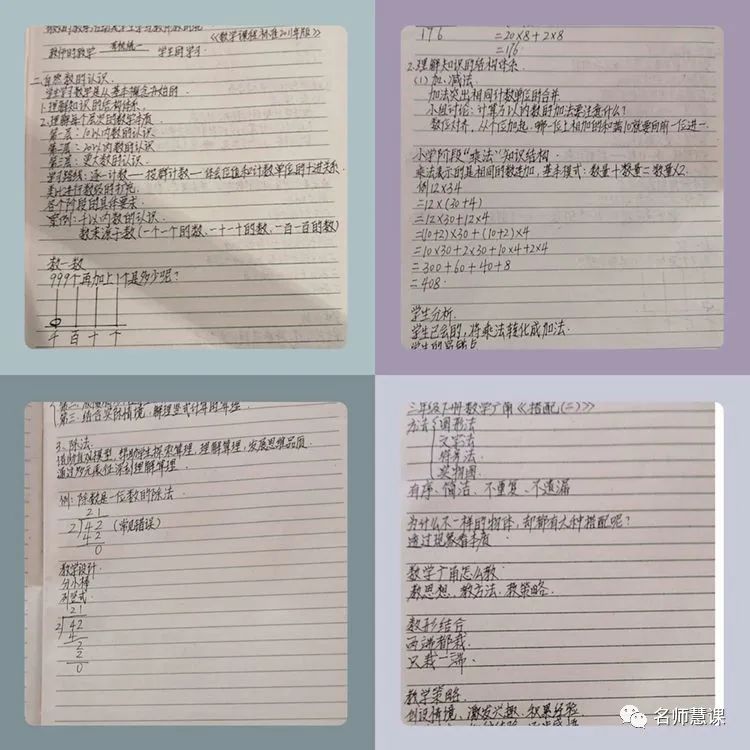 《数学课程标准2011年版》
教师的教学 有机统一 学生的学习
二、自然数的认识.
学生学习数学是从基本概念开始的.
1.理解知识的结构体系.
2.理解每个层次的教学本质
第一层：10以内数的认识.
第二层：20以内数的认识
第三层：更大数的认识.
学习路线：逐一计数—按群计数—体会位值和计数单位的十进关系.
类比进行数级的扩充
各个阶段的具体要求.
案例：千以内数的认识.
数来源于数(一个一个的数、一十一十的数、一百一百的数)
数一数
999个再加上1个是多少呢？
千 百 十 个
176 =20×8+2×8
=176
2.理解知识的结构体系
(1)加、减法
加法突出相同计数单位的合并
小组讨论：计算万以内数的加法要注意什么？
数位对齐，从个位加起，哪一位上相加的和满10就要向前一位进一.
小学阶段“乘法”知识结构
乘法表示的是相同的数连加，基本模式：数量+数量=数量×2.
例12×34
=12×(30+4)
=12×30+12×4
=(10+2)×30+(10+2)×4
=10×30+2×30+10×4+2×4
=300+60+40+8
=408.
学生分析.
学生已会的，将乘法转化成加法.
第三：结合实际情境，解理竖式计算的算理.
3、除法.
借助直观模型，帮助学生探索算理，理解算理，发展思维品质.
通过多元表征深刻理解算理.
例：除数是一位数的除法.
21
2)42 (常见错误)
42
0
教学设计.
分小棒
列竖式.
21
2)42
4
2
2
0
三年级下册数学广角《搭配(二)》
方法 画图法
文字法
符号法
实物图.
有序、简洁、不重复、不遗漏
为什么不一样的物体，却都有六种搭配呢？
透过现象看本质
数学广角怎么教
教思想、教方法、教策略.
数形结合
两端都栽.
只栽一端.
教学策略.
创设情境，激发兴趣，积累经验
名师慧课